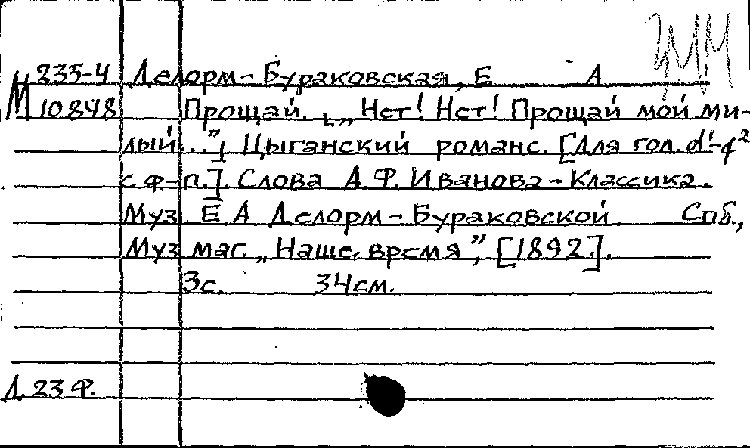 М 235-4 Делорм-Бураковская, Е А
10848 Прощай. [„Нет! Нет! Прощай мой ми-
лый..."] Цыганский романс. [Для гол. d¹-g²
с ф-п.]. Слова А.Ф. Иванова-Классика.
Муз Е А Делорм-Бураковской. Спб.,
Муз маг. „Наше время", [1892].
3с. 34см.
Л 23 Ф.